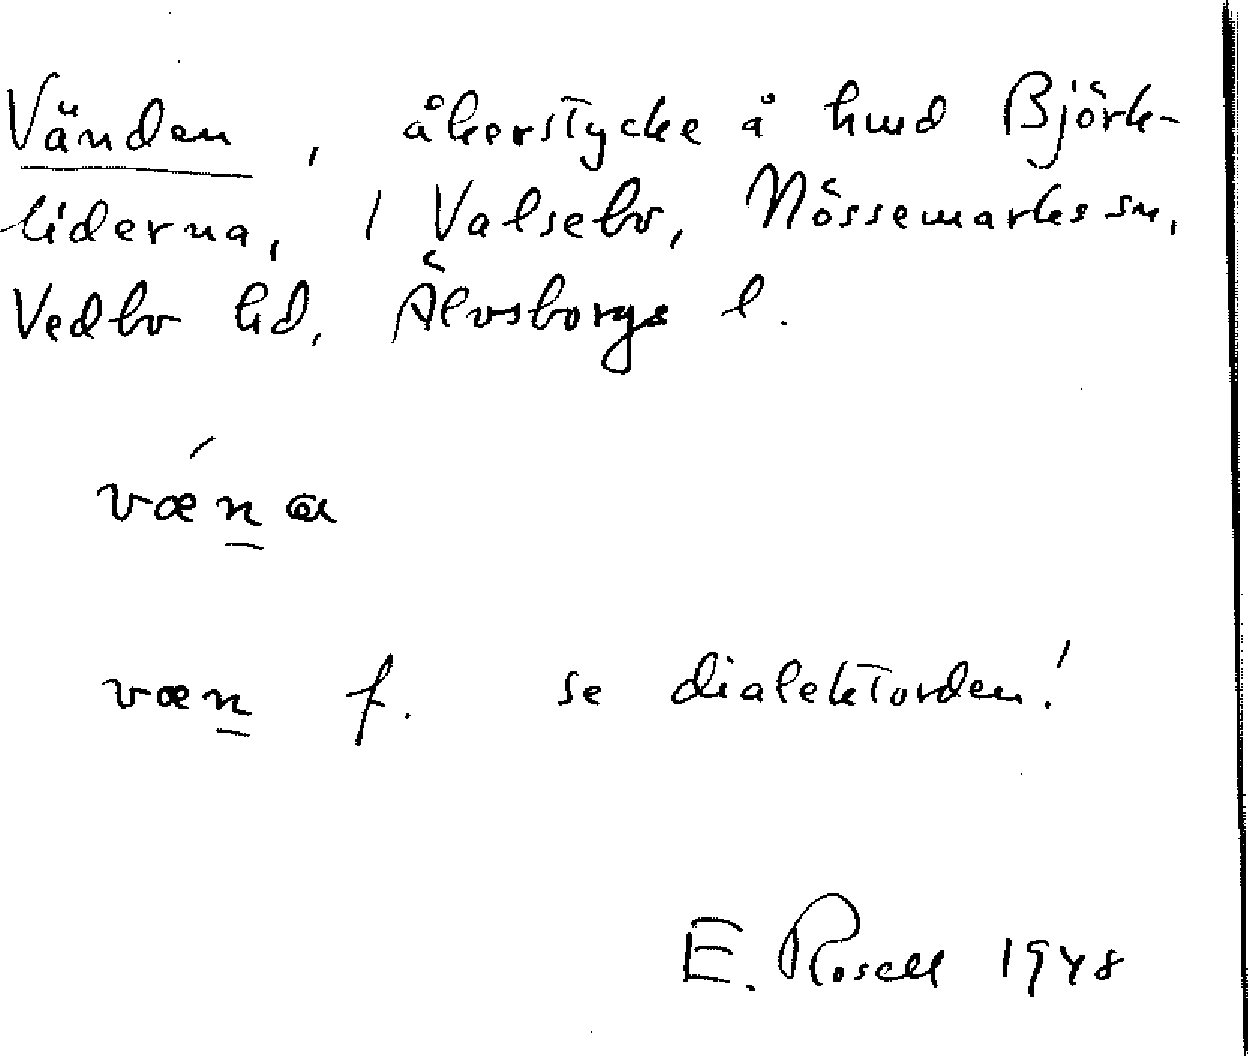 Vänden, åkerstycke å hmd Björk-
liderna, 1 Valsebo, Nössemarks sn,
Vedbo hd, Älvsborgs l.
vǽna
væn f. se dialektorden!
E. Rosell 1948